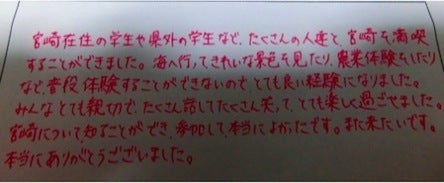 宮崎在住の学生や県外の学生など、たくさんの人達と、宮崎を満喫
することができました。海へ行ってきれいな景色を見たり、農業体験をしたり
など、普段体験することができないので、とても良い経験になりました。
みんなとても親切で、たくさん話してたくさん笑って、とても楽しく過ごせました。
宮崎について知ることができ、参加して、本当によかったです。また来たいです。
本当にありがとうございました。